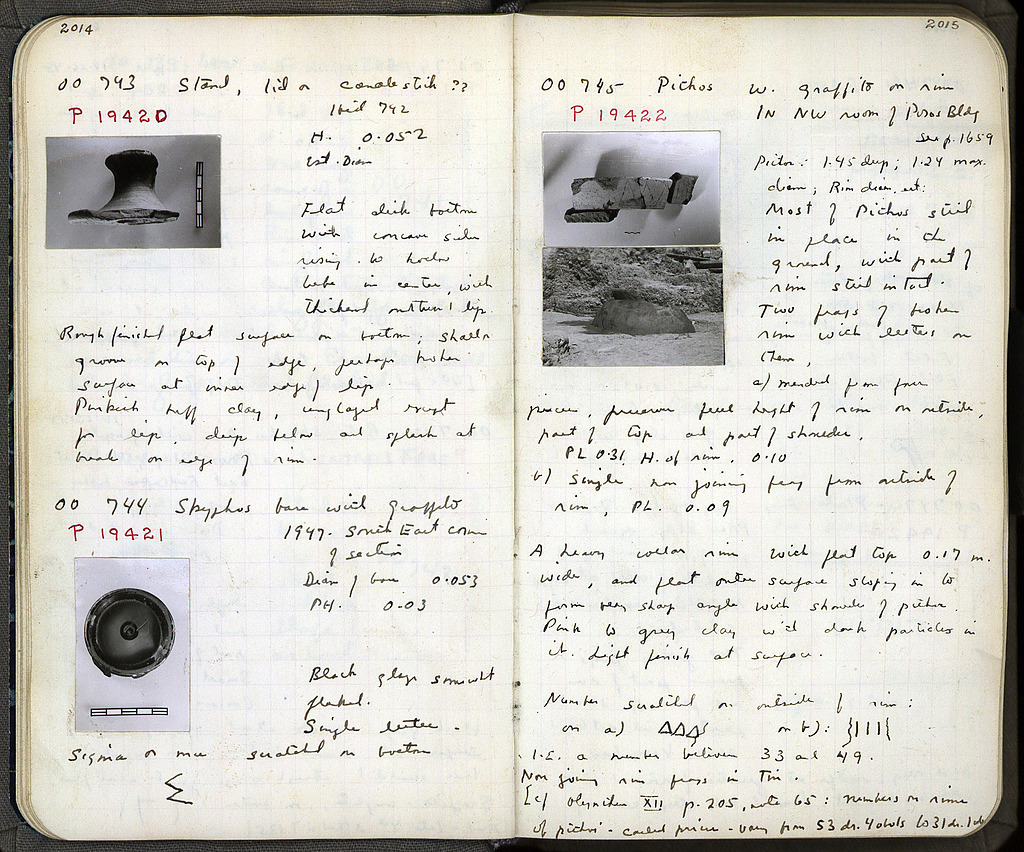 2014
OO 743 Stand, lid or candlestick ??
P 19420
Ibid 742
H. 0.052
Est. Diam
Flat disk bottom
with concave sides
rising to hollow
tube in center, with
thickened outturned lip.
Rough finished flat surface on bottom; shallow
groove on top of edge, perhaps broken
surface at inner edge of lip
Pinkish buff clay, unglazed except
for lip drip below and splash at
break on edge of rim.
OO 744 Skyphos base with graffito
P 19421
1947. South East corner
of section
Diam of base 0.053
PH. 0.03
Black glaze somewhat
flaked.
Single letter.
Sigma or mu scratched on bottom
Σ
2015
OO 745 Pithos w. graffito on rim
P 19422
IN NW room of Poros Bldg
See p. 1659
Pithos: 1.45 deep; 1.24 max.
diam; Rim diam. est:
Most of Pithos still
in place in the
ground, with part of
rim still intact.
Two frags of broken
rim with letters on
them,
a) mended from four
pieces, preserves full height of rim on outside,
part of top and part of shoulder,
PL 0.31 H. of rim. 0.10
b) Single, non joining frag from outside of
rim, PL. 0.09
A heavy collar rim with flat top 0.17 m.
wide, and flat outer surface sloping in to
form very sharp angle with shoulder of pithos.
Pink to grey clay with dark particles in
it. Light finish at surface.
Number scratched on outside of rim:
on a) ΔΔΔ{ on b): }|||{
I.E. a number between 33 and 49.
Non joining rim frags in Tin.
[cf Olynthus XII p. 205, note 65: numbers on rims
of pithoi - called prices - vary from 53 dr. 4 obols to 31 dr. 1 ob